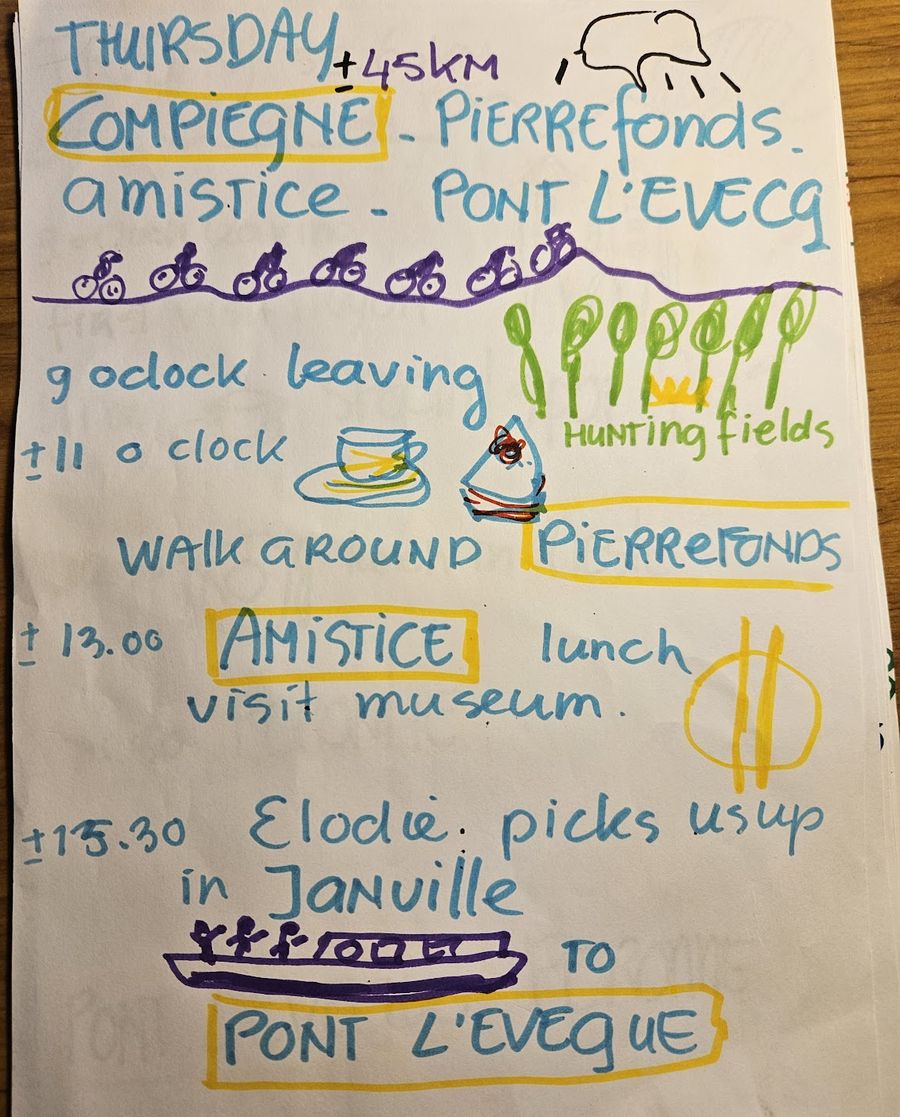 THURSDAY ±45KM
COMPIEGNE - PIERREfonds.
amistice - PONT L'EVECQ
9 oclock leaving
HUNTing fields
±11 o clock
WALK AROUND PIERReFONDS
± 13.00 AMISTICE lunch
visit museum.
±15.30 Elodie picks us up
in JANville
TO
PONT L'EVEGUE